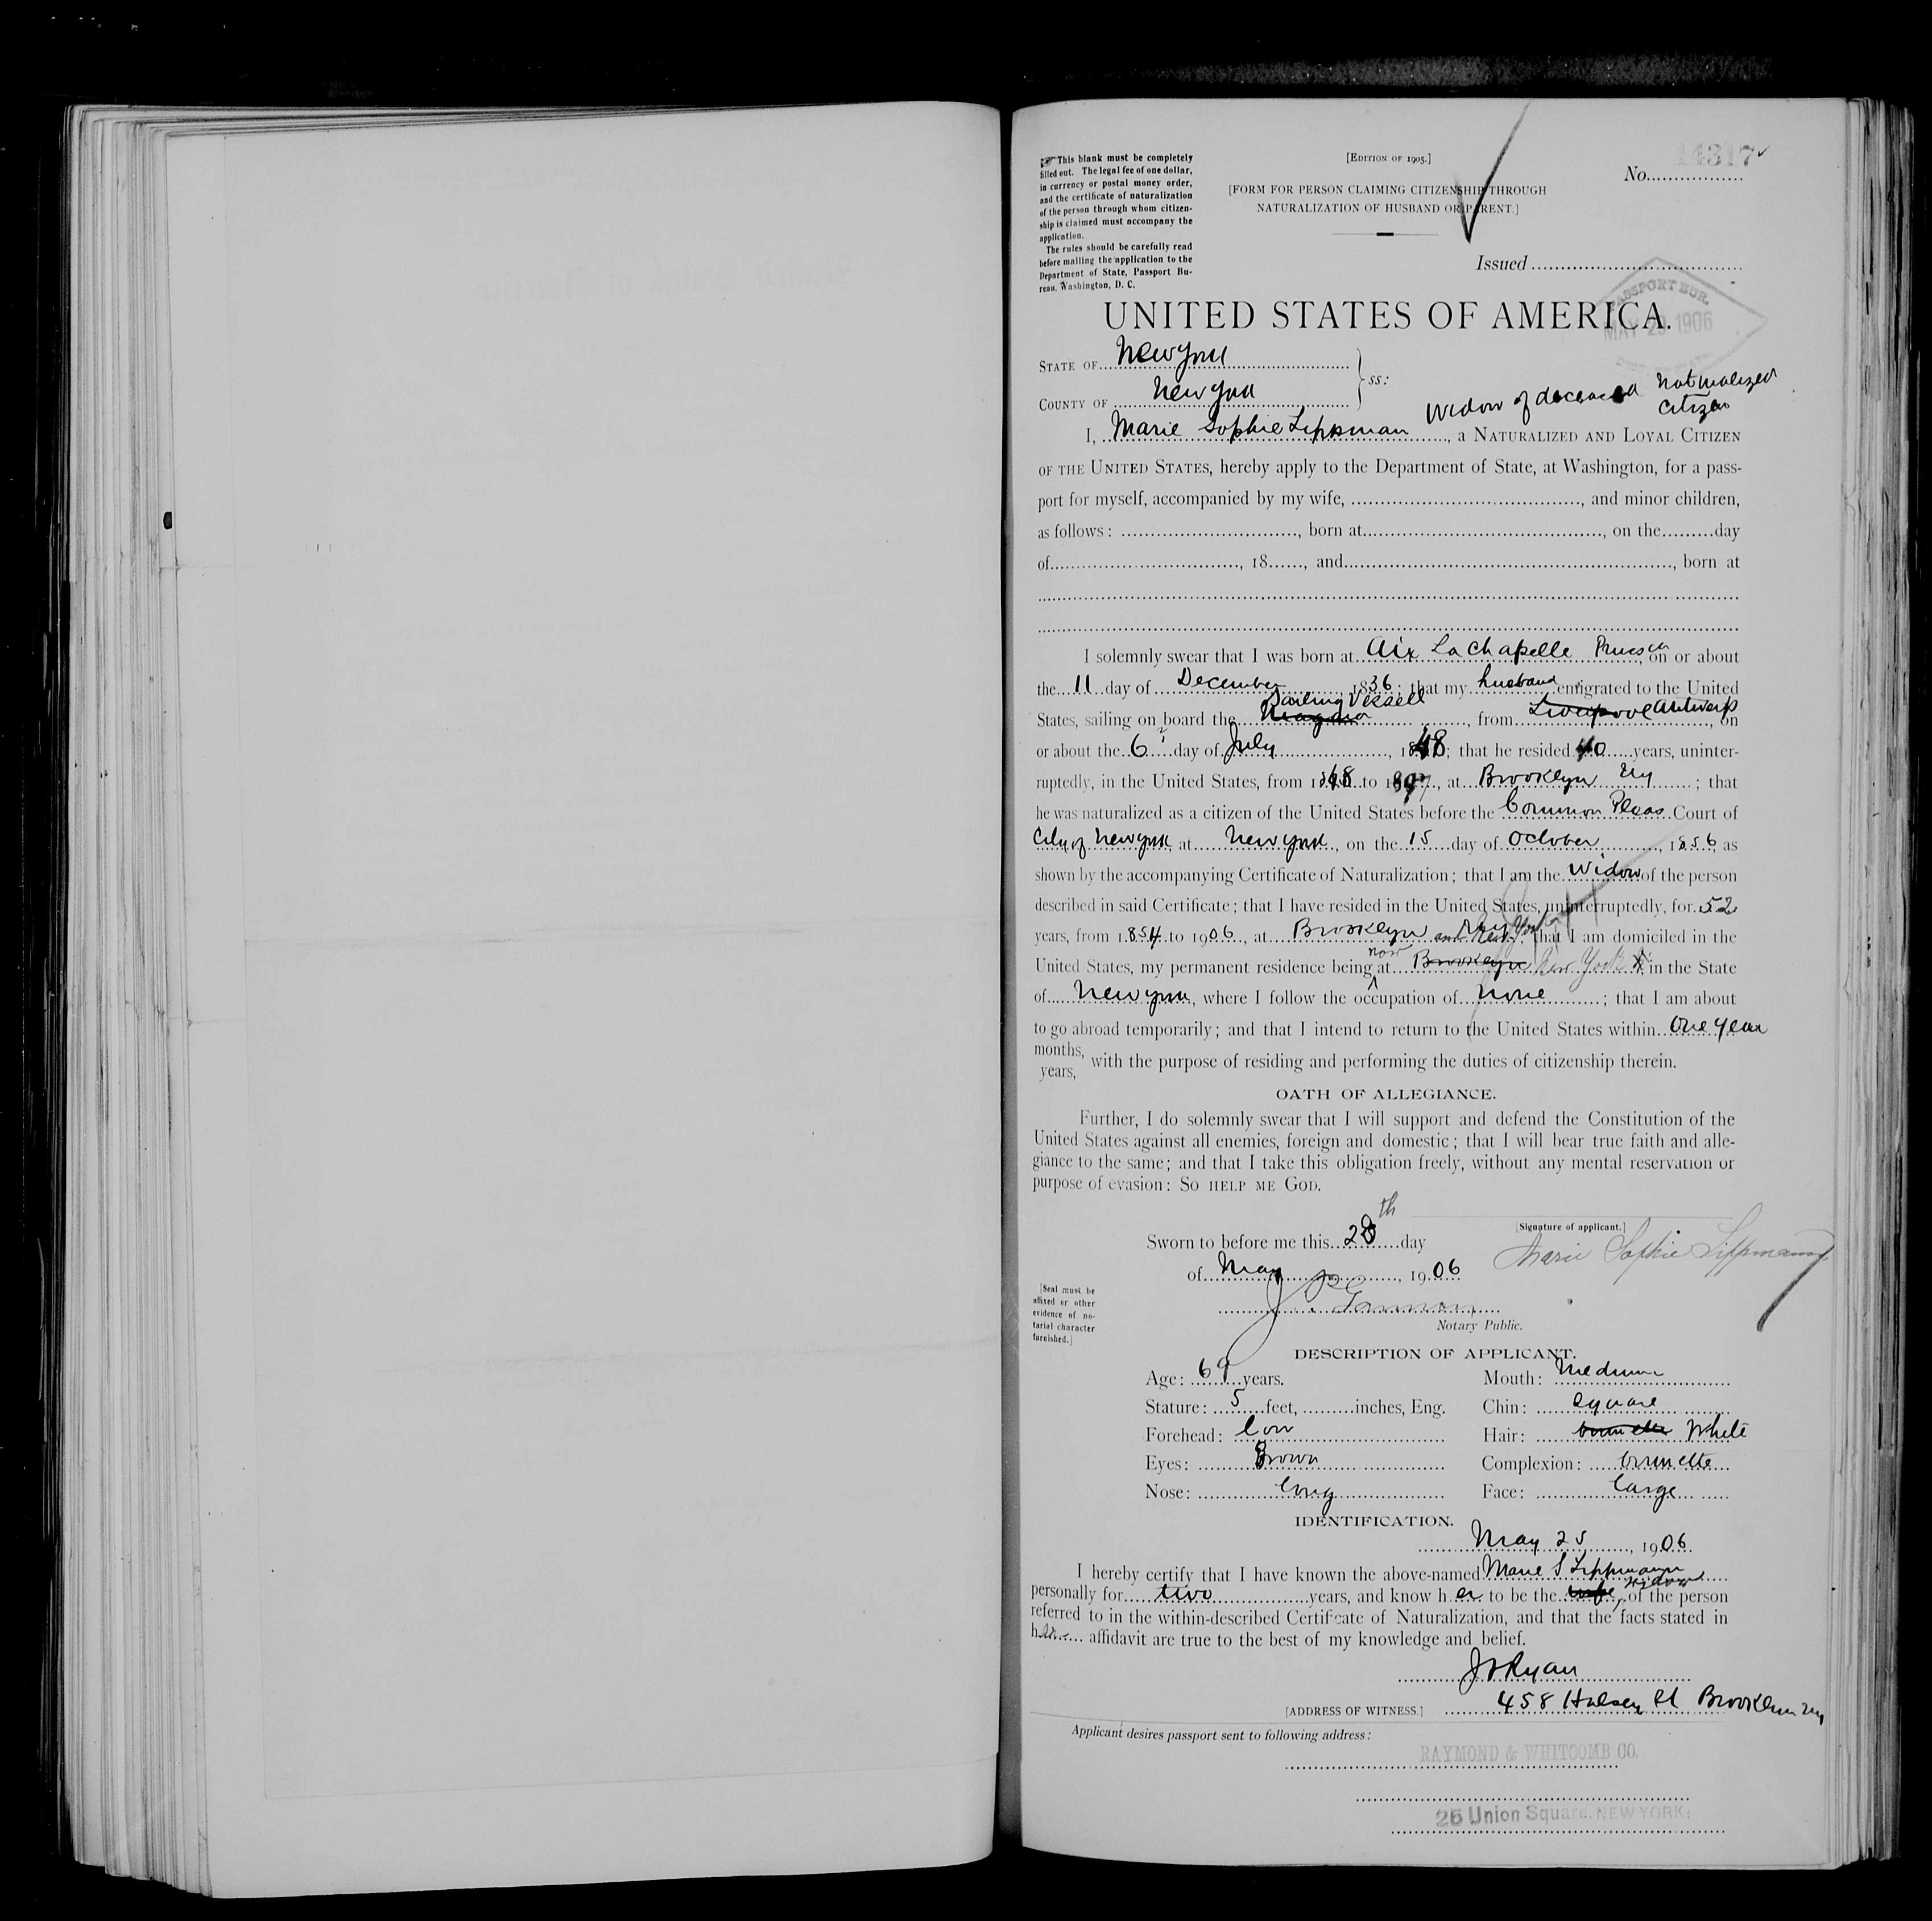 This blank must be completely
filled out. The legal fee of one dollar,
in currency or postal money order,
and the certificate of naturalization
of the person through whom citizen-
ship is claimed must accompany the
application.
The rules should be carefully read
before mailing the application to the
Department of State, Passport Bu-
reau, Washington, D. C.
[EDITION OF 1905.]
[FORM FOR PERSON CLAIMING CITIZENSHIP THROUGH
NATURALIZATION OF HUSBAND OR PARENT.]
14317
No.
Issued
PASSPORT BUR.
MAY 29 1906
UNITED STATES OF AMERICA.
STATE OF New York
COUNTY OF New York } ss:
Widow of deceased Naturalized
Citizen
I, Marie Sophie Lippman, a NATURALIZED AND LOYAL CITIZEN
OF THE UNITED STATES, hereby apply to the Department of State, at Washington, for a pass-
port for myself, accompanied by my wife, , and minor children,
as follows: , born at , on the day
of , 18 , and , born at
I solemnly swear that I was born at Aix La Chapelle Prussia, on or about
the 11 day of December, 1836; that my husband emigrated to the United
States, sailing on board the Sailing Vessell, from Liverpool Antwerp, on
or about the 6 day of July, 1848; that he resided 40 years, uninter-
ruptedly, in the United States, from 1848 to 1897, at Brooklyn NY; that
he was naturalized as a citizen of the United States before the Common Pleas Court of
City of New York, at New York, on the 15 day of October, 1856, as
shown by the accompanying Certificate of Naturalization; that I am the Widow of the person
described in said Certificate; that I have resided in the United States, uninterruptedly, for 52
years, from 1854 to 1906, at Brooklyn and New York; that I am domiciled in the
United States, my permanent residence being now at Brooklyn New York in the State
of New York, where I follow the occupation of none; that I am about
to go abroad temporarily; and that I intend to return to the United States within One year
months,
years, with the purpose of residing and performing the duties of citizenship therein.
OATH OF ALLEGIANCE.
Further, I do solemnly swear that I will support and defend the Constitution of the
United States against all enemies, foreign and domestic; that I will bear true faith and alle-
giance to the same; and that I take this obligation freely, without any mental reservation or
purpose of evasion: SO HELP ME GOD.
[Signature of applicant.]
Marie Sophie Lippmann
Sworn to before me this 28th day
of May, 1906
[Seal must be
affixed or other
evidence of no-
tarial character
furnished.]
Notary Public.
DESCRIPTION OF APPLICANT.
Age: 69 years. Mouth: Medium
Stature: 5 feet, inches, Eng. Chin: Square
Forehead: low Hair: brunette White
Eyes: Brown Complexion: brunette
Nose: long Face: large
IDENTIFICATION.
May 25, 1906
I hereby certify that I have known the above-named Marie S Lippmann
personally for two years, and know her to be the wife widow of the person
referred to in the within-described Certificate of Naturalization, and that the facts stated in
her affidavit are true to the best of my knowledge and belief.
Ryan
[ADDRESS OF WITNESS.] 458 Halsey St Brooklyn NY
Applicant desires passport sent to following address:
RAYMOND & WHITCOMB CO.
25 Union Square. NEW YORK.